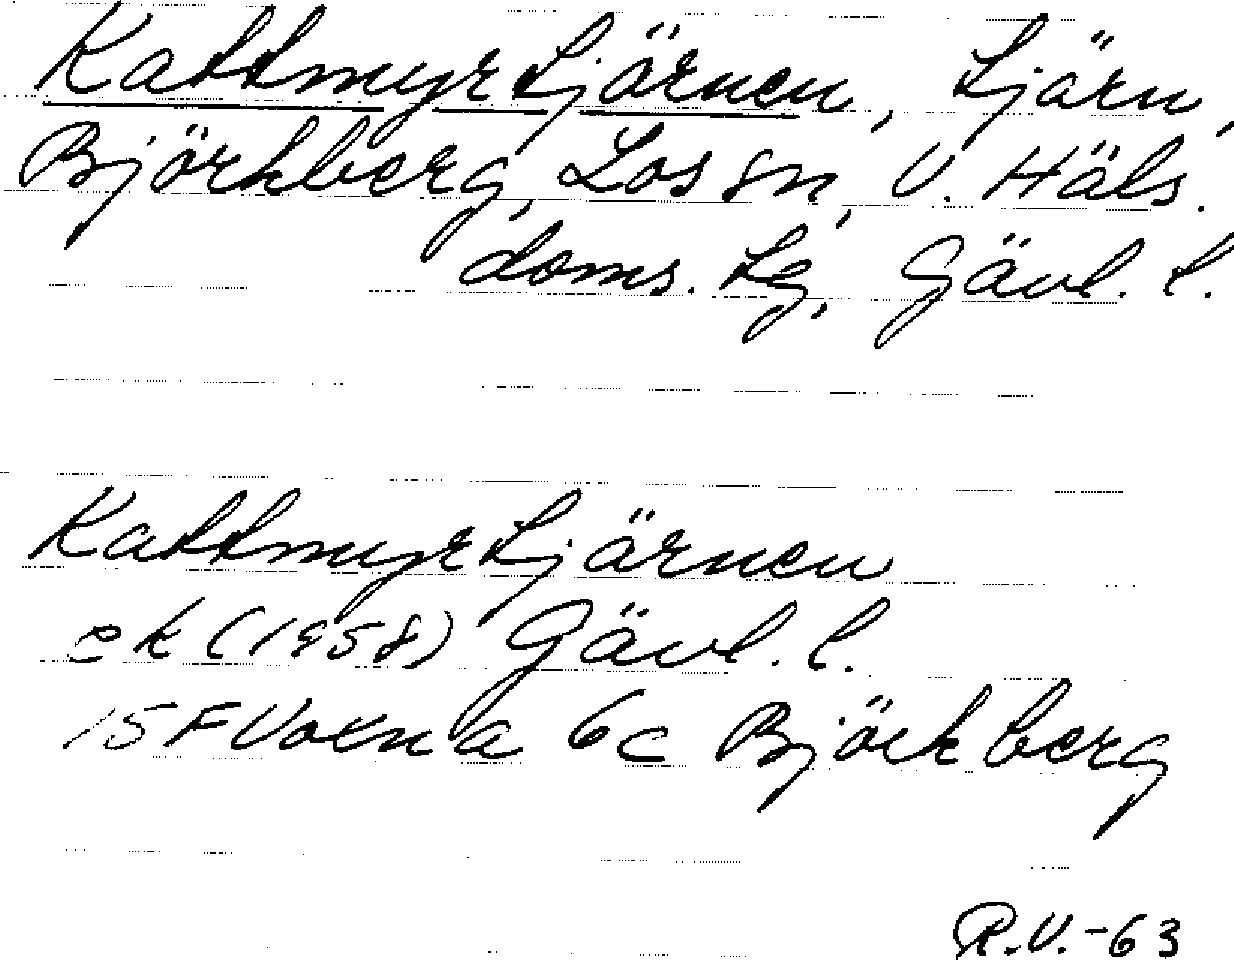 Kattmyrtjärnen, tjärn,
Björkberg, Los sn, V. Häls.
doms. tg, Gävl. l.
Kattmyrtjärnen
ek (1958) Gävl. l.
15 F Voxna 6c Björkberg
R.V.-63